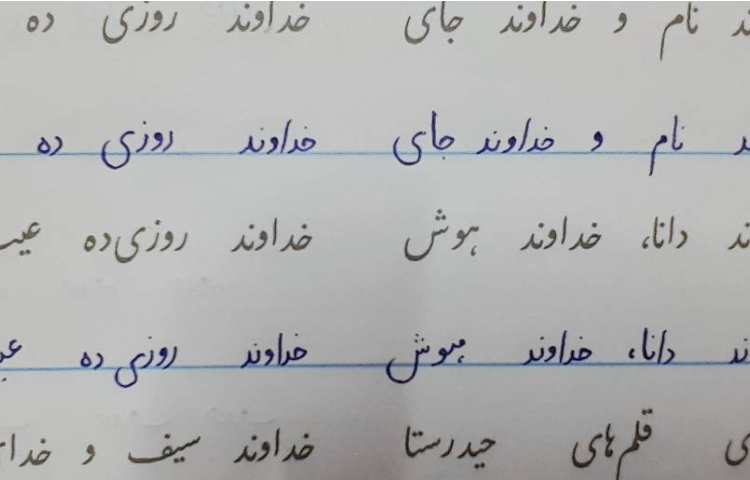 نام و خداوند جای خداوند روزی ده
نام و خداوند جای خداوند روزی ده
دانا، خداوند هوش خداوند روزی‌ده
دانا، خداوند هوش خداوند روزی ده
قلم‌های حیدرستا خداوند سیف و